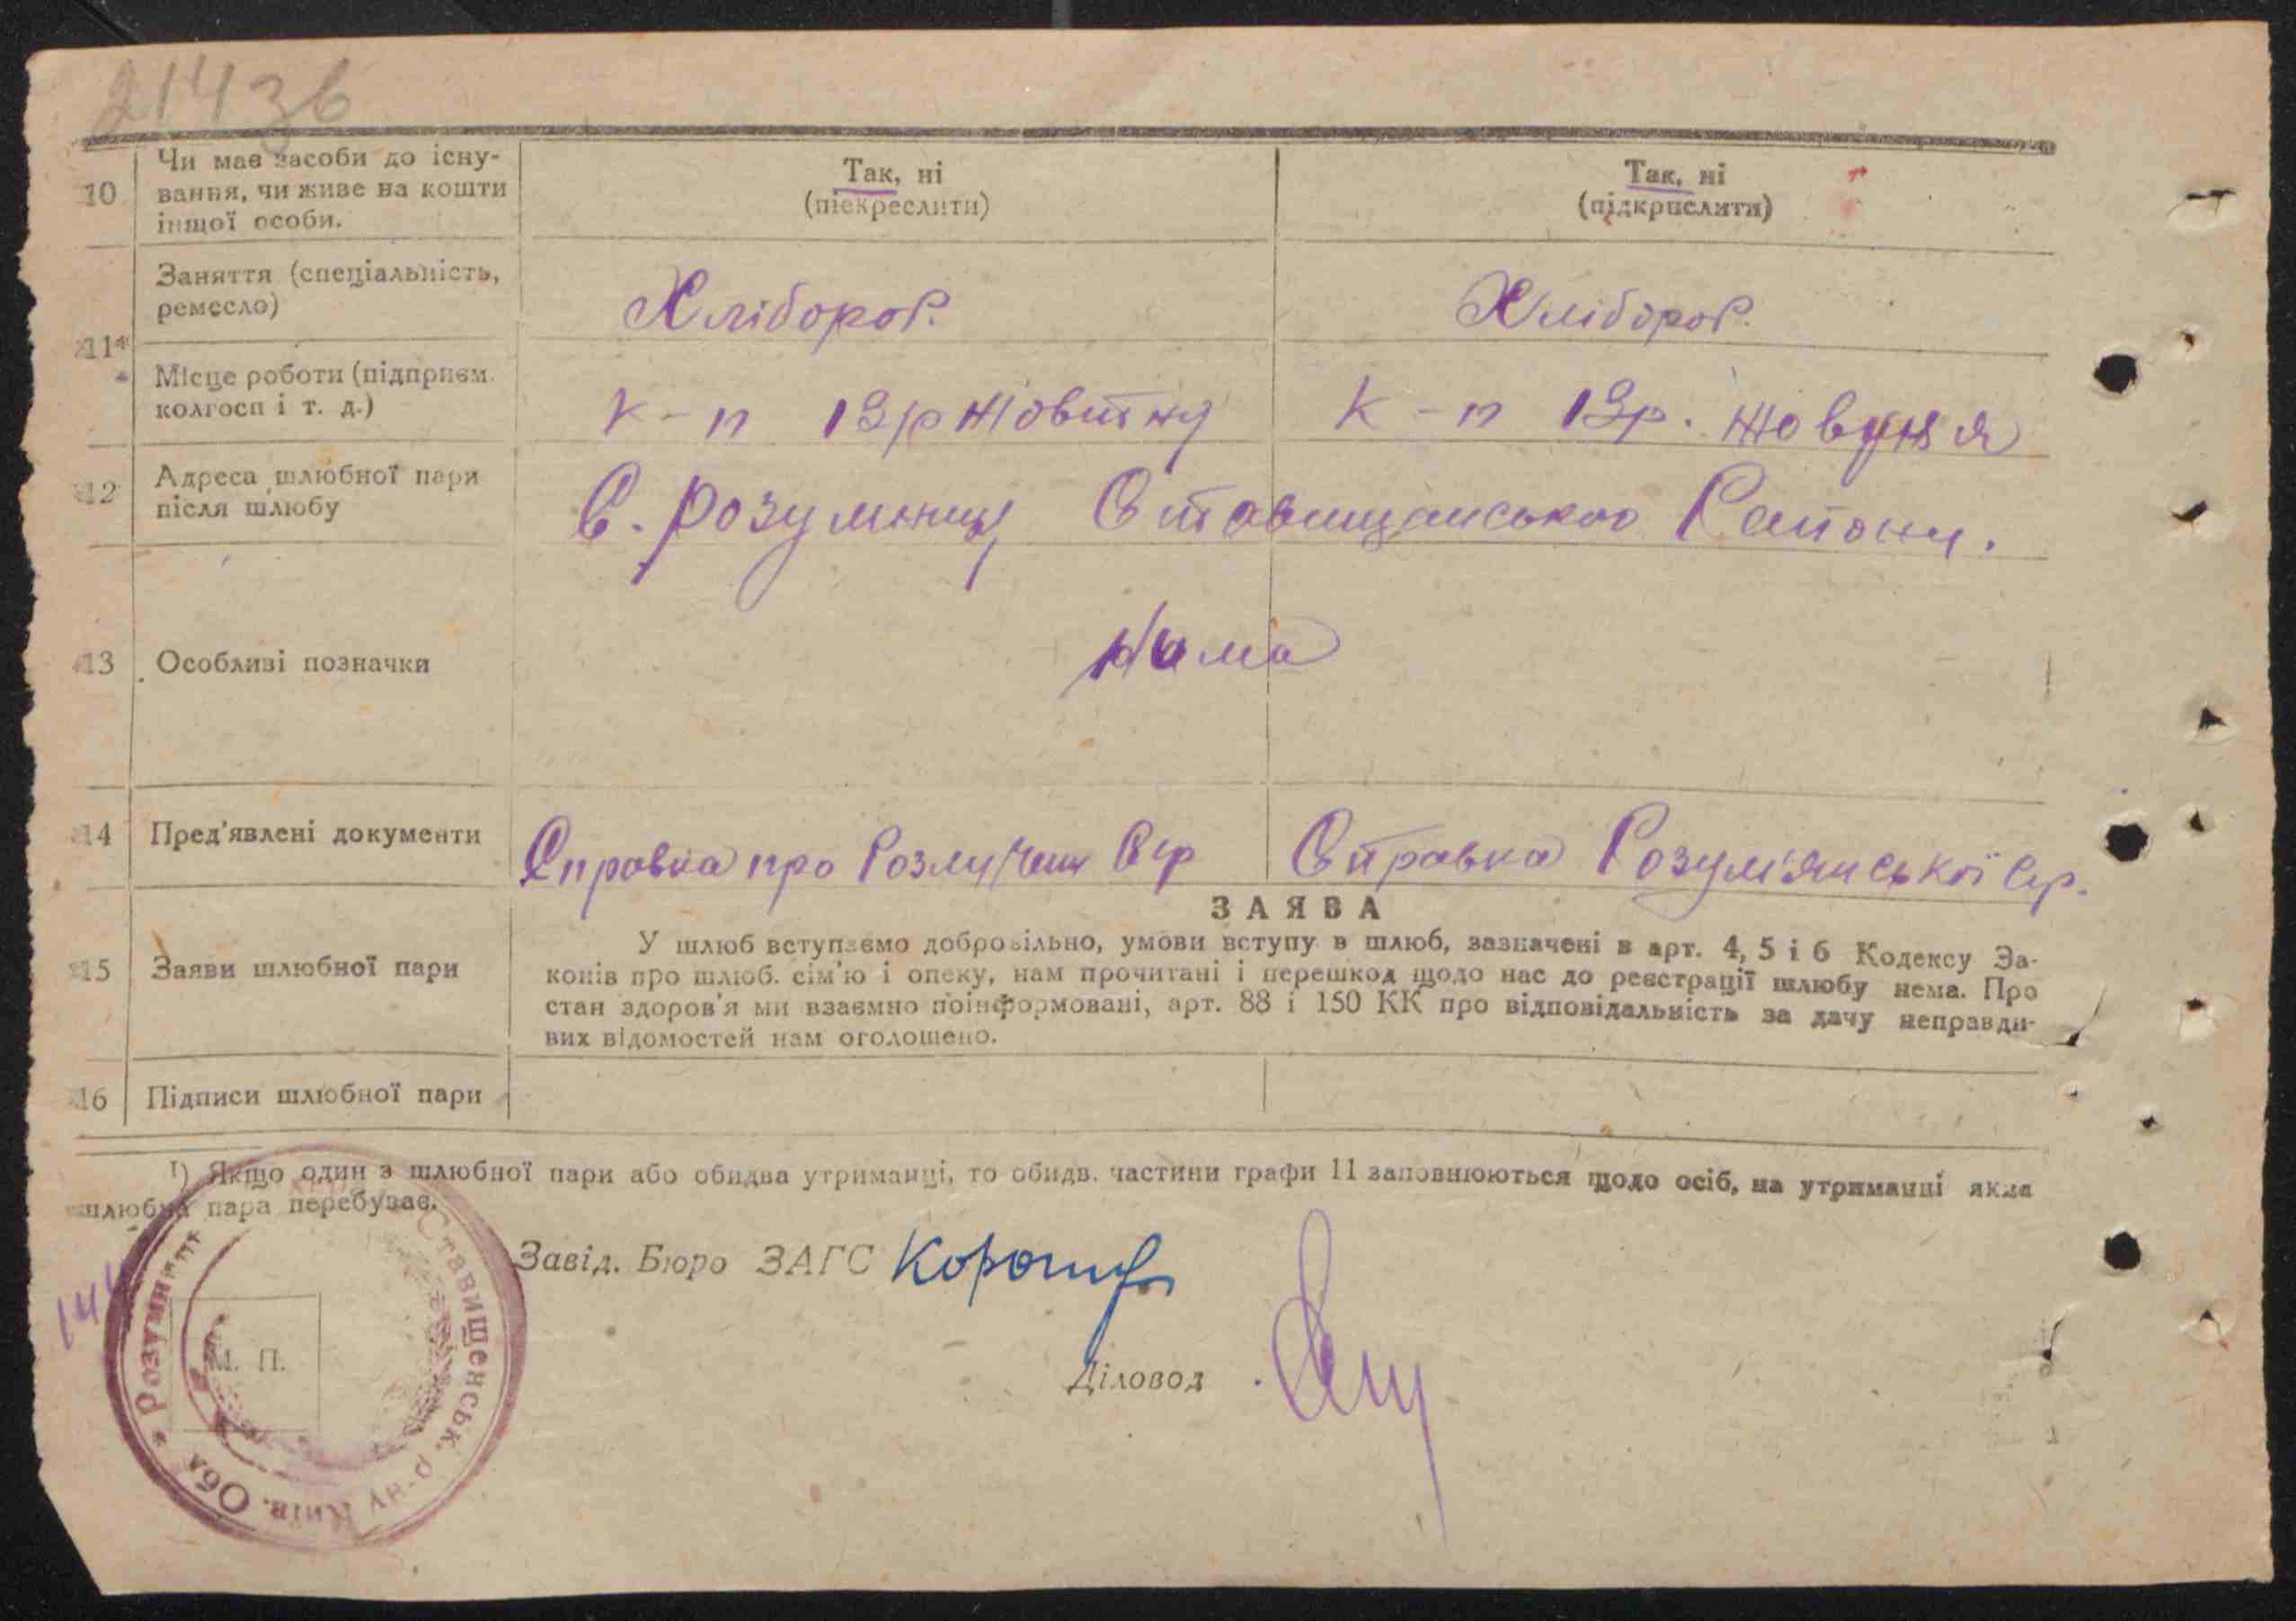 214 зв
10 Чи має засоби до існу-
вання, чи живе на кошти
іншої особи.
Так, ні
(піекреслити)
Так, ні
(підкрпслити)
11* Заняття (спеціальність,
ремесло)
Хлібороб.
Хлібороб.
Місце роботи (підприєм.
колгосп і т. д.)
к-п 13р Жовтну
к-п 13р. Жовтня
12 Адреса шлюбної пари
після шлюбу
С. Розумниця Ставищанського Району.
13 Особливі позначки
Нима
14 Пред'явлені документи
Справка про Розлучення С/р
Справка Розумянської с/р.
15 Заяви шлюбної пари
ЗАЯВА
У шлюб вступаємо добровільно, умови вступу в шлюб, зазначені в арт. 4, 5 і 6 Кодексу За-
конів про шлюб. сім'ю і опеку, нам прочитані і перешкод щодо нас до реєстрації шлюбу нема. Про
стан здоров'я ми взаємно поінформовані, арт. 88 і 150 КК про відповідальність за дачу неправди-
вих відомостей нам оголошено.
16 Підписи шлюбної пари
1) Якщо один з шлюбної пари або обидва утриманці, то обидв. частини графи 11 заповнюються щодо осіб, на утриманні яких
шлюбна пара перебуває.
Завід. Бюро ЗАГС
М. П.
Діловод
144
Ставищенськ. р-ну Київ. Обл